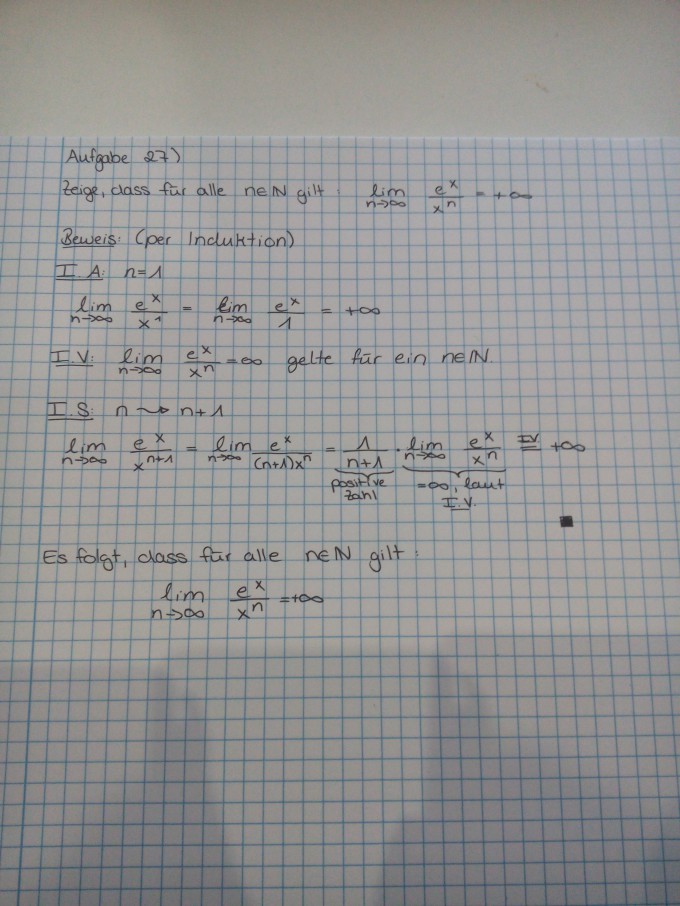 Aufgabe 27)
Zeige, dass für alle n∈ℕ gilt: lim_{n→∞} e^x/x^n = +∞
Beweis: (per Induktion)
I.A: n=1
lim_{n→∞} e^x/x^1 = lim_{n→∞} e^x/1 = +∞
I.V: lim_{n→∞} e^x/x^n = ∞ gelte für ein n∈ℕ.
I.S: n ⇝ n+1
lim_{n→∞} e^x/x^{n+1} = lim_{n→∞} e^x/((n+1)x^n) = 1/(n+1) · lim_{n→∞} e^x/x^n =^{I.V} +∞
positive Zahl
=∞, laut I.V.
■
Es folgt, dass für alle n∈ℕ gilt:
lim_{n→∞} e^x/x^n = +∞